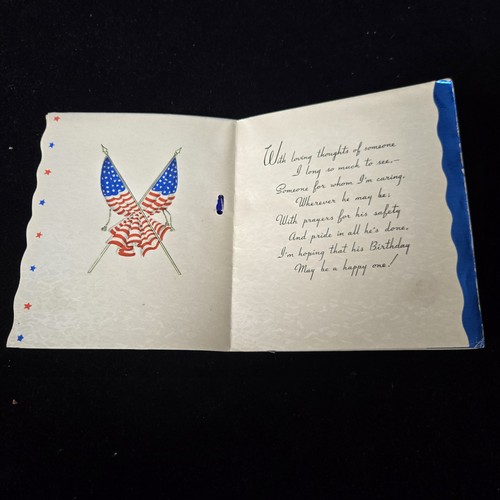 With loving thoughts of someone
I long so much to see,—
Someone for whom I'm caring,
Wherever he may be;
With prayers for his safety
And pride in all he's done,
I'm hoping that his Birthday
May be a happy one!